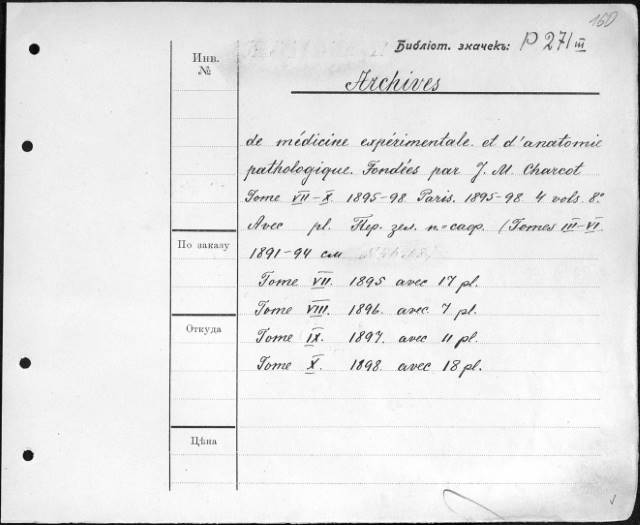 160
Библіот. значекъ: P 271 III
Инв.
№
Archives
de médicine expérimentale et d'anatomie
pathologique. Fondées par J. M. Charcot
Tome VII–X. 1895–98. Paris. 1895–98. 4 vols. 8°
Avec pl. Пер. зел. п=саф. (Tomes III–VI.
1891–94 см
По заказу
Tome VII. 1895 avec 17 pl.
Tome VIII. 1896. avec. 7 pl.
Откуда
Tome IX. 1897. avec 11 pl.
Tome X. 1898. avec 18 pl.
Цѣна